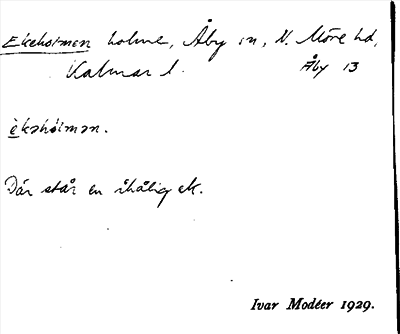 Ekeholmen holme, Åby sn, N. Möre hd,
Kalmar l. Åby 13
èkəhòlmən.
Där står en ihålig ek.
Ivar Modéer 1929.